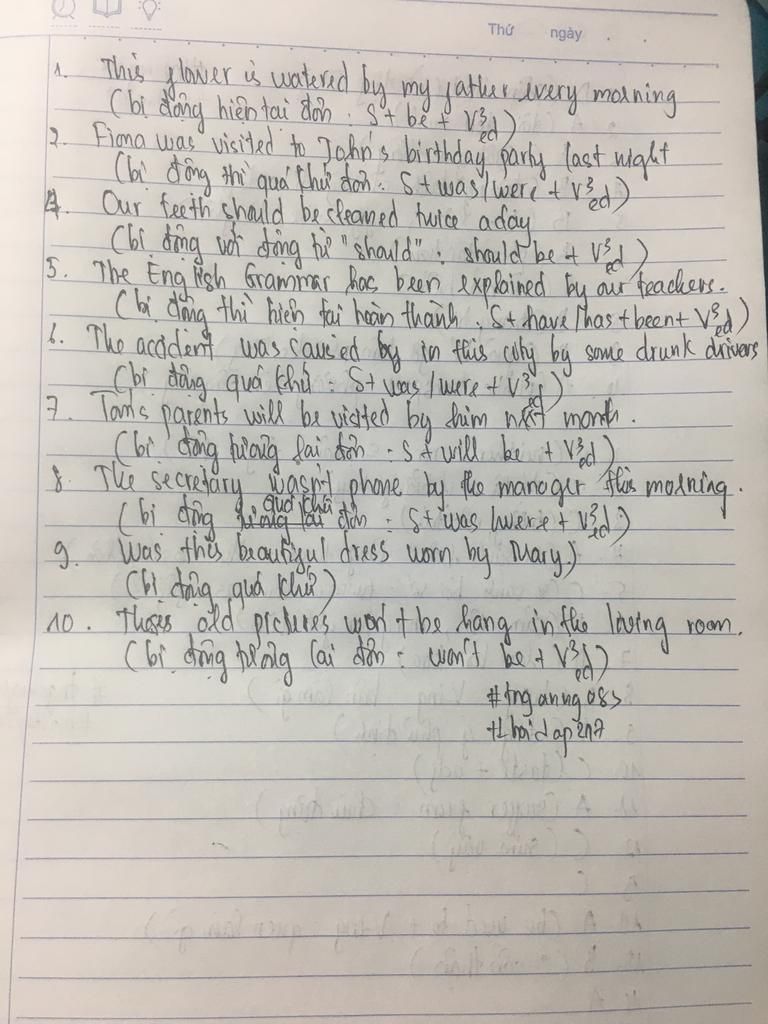 Thứ ngày . .
1. This flower is watered by my father every morning
(bị động hiện tại đơn : S + be + V3/ed)
2. Fiona was visited to John's birthday party last night
(bị động thì quá khứ đơn : S + was/were + V3/ed)
4. Our teeth should be cleaned twice a day
(bị động với động từ "should" : should be + V3/ed)
5. The English Grammar has been explained by our teachers.
(bị động thì hiện tại hoàn thành : S + have/has + been + V3/ed)
6. The accident was caused by in this city by some drunk drivers
(bị động quá khứ : S + was/were + V3/ed)
7. Tom's parents will be visited by him next month.
(bị động tương lai đơn : S + will be + V3/ed)
8. The secretary wasn't phone by the manager this morning.
(bị động quá khứ đơn : S + was/were + V3/ed)
9. Was this beautiful dress worn by Mary)
(bị động quá khứ)
10. Thoses old pictures won't be hang in the living room.
(bị động tương lai đơn : won't be + V3/ed)